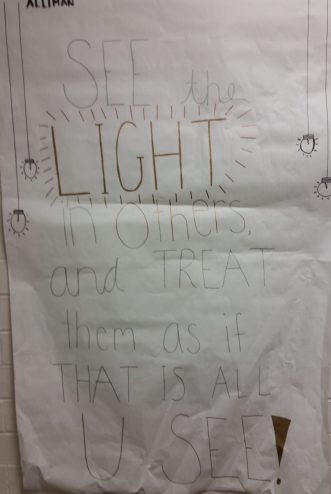 ALLIMAN
SEE the
LIGHT
in others,
and TREAT
them as if
THAT IS ALL
U SEE!